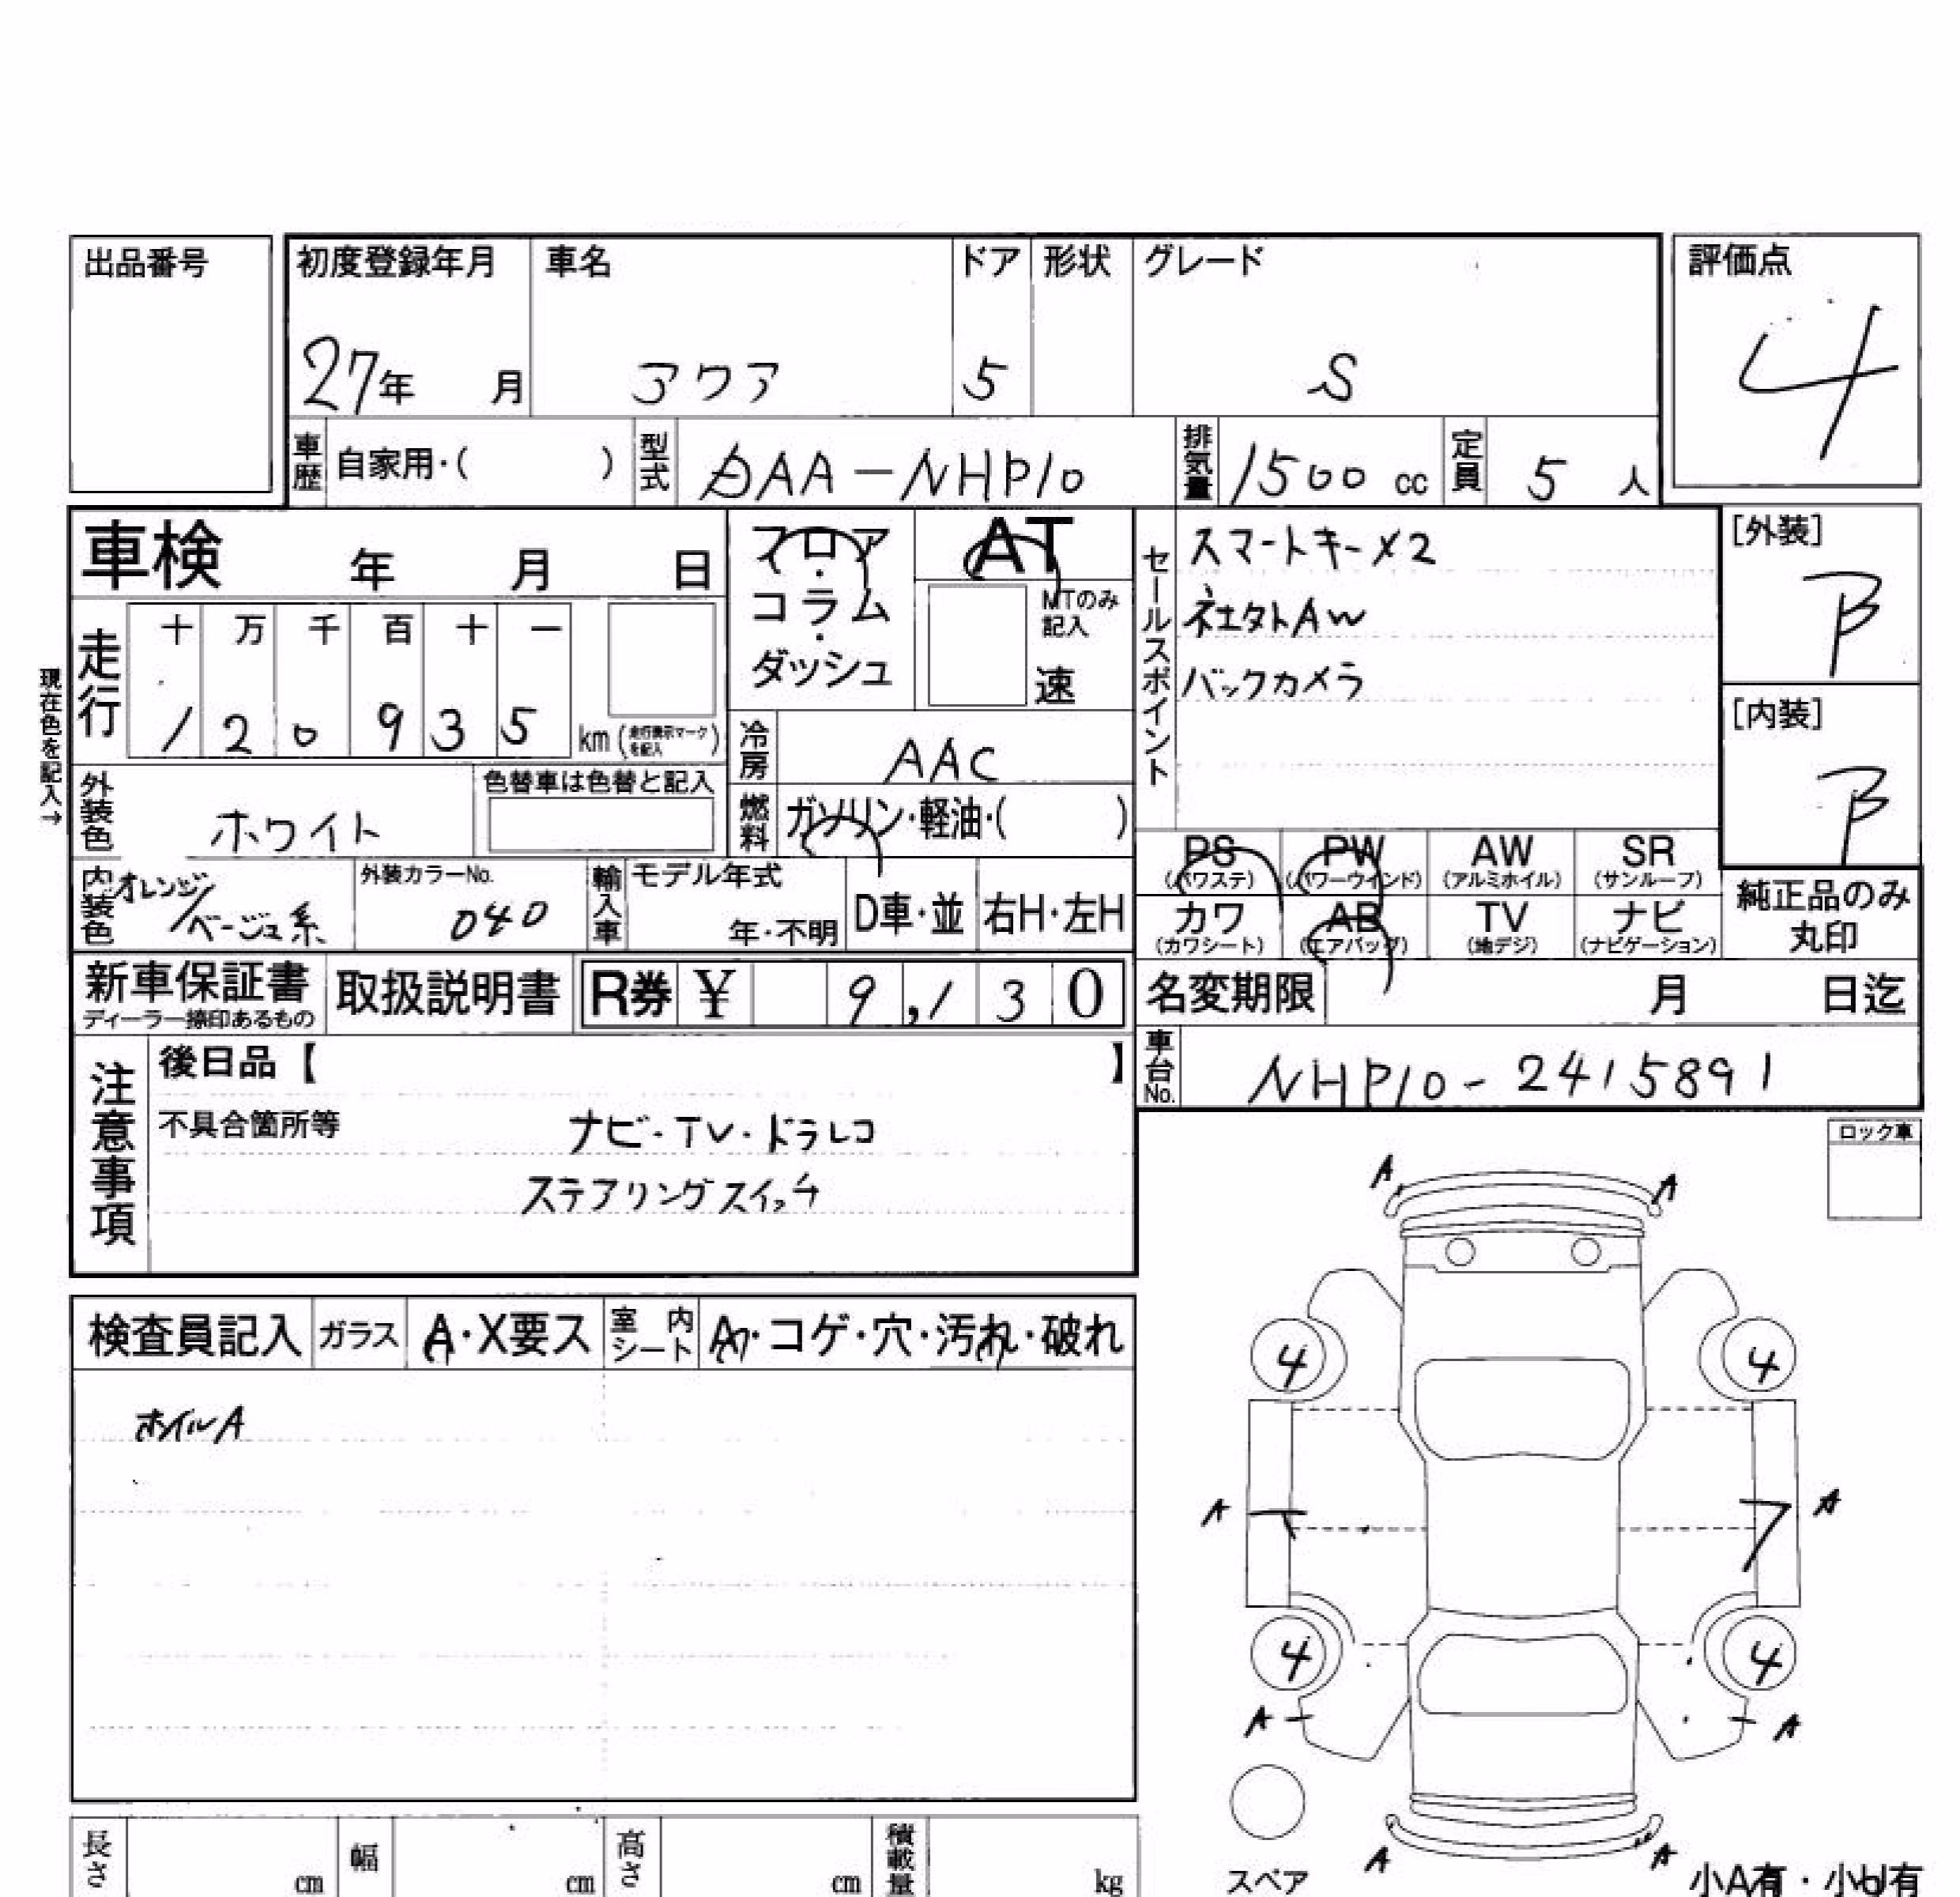 出品番号
初度登録年月 車名 ドア 形状 グレード 評価点
27年 月 アクア 5 S 4
車歴 自家用・( ) 型式 DAA-NHP10 排気量 1500 cc 定員 5 人
車検 年 月 日
フロア・コラム・ダッシュ
AT
MTのみ記入
速
セールスポイント
スマートキー×2
社外AW
バックカメラ
[外装]
B
[内装]
B
現在色を記入→
走行 十 万 千 百 十 一
1 2 0 9 3 5 km
冷房 AAC
外装色 ホワイト 色替車は色替と記入
燃料 ガソリン・軽油・( )
PS (パワステ) PW (パワーウインド) AW (アルミホイル) SR (サンルーフ)
カワ (カワシート) AB (エアバッグ) TV (地デジ) ナビ (ナビゲーション)
純正品のみ丸印
内装色 オレンジ/ベージュ系 外装カラーNo. 040 輸入車 モデル年式 年・不明 D車・並 右H・左H
新車保証書 ディーラー捺印あるもの 取扱説明書 R券 ¥ 9,130
名変期限 月 日迄
車台No. NHP10-2415891
注意事項
後日品【 】
不具合箇所等 ナビ・TV・ドラレコ
ステアリングスイッチ
ロック車
検査員記入 ガラス A・X要ス 室内シート A・コゲ・穴・汚れ・破れ
ホイルA
A A
4 4
A A
4 4
A A
A A
スペア
小A有・小U有
長さ cm 幅 cm 高さ cm 積載量 kg